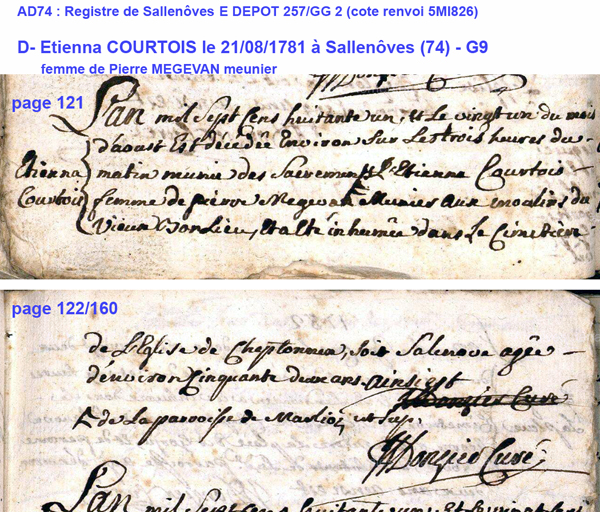 AD74 : Registre de Sallenôves E DEPOT 257/GG 2 (cote renvoi 5MI826)
D- Etienna COURTOIS le 21/08/1781 à Sallenôves (74) - G9
femme de Pierre MEGEVAN meunier
page 121
L'an mil Sept Cens huitante un, et Le vingt un du mois
d'aoust Est décédée Environ Sur Les trois heures du
Etienna
matin munie des Sacremens Etienne Courtois
Courtois
femme de pierre Megevan Munier aux moulins du
Vieux Bonlieu, et a été inhumée dans Le Cimetiere
page 122/160
de L'Eglise de Cheptonnex, soit Salenove agée
d'environ Cinquante deux ans. ainsi est
Curé
de La parroisse de Marlioz ut sup.
Curé
L'an mil Sept Cens huitante un, et Le vingt